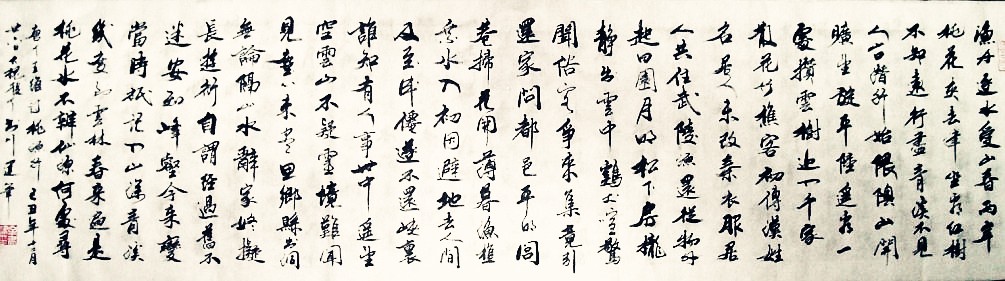 漁舟逐水愛山春兩岸
桃花夾去津坐看紅樹
不知遠行盡青溪不見
人山口潛行始隈隩山開
曠望旋平陸遙看一
處攢雲樹近入千家
散花竹樵客初傳漢姓
名居人未改秦衣服居
人共住武陵源還從物外
起田園月明松下房櫳
靜日出雲中鷄犬喧驚
聞俗客爭來集競引
還家問都邑平明閭
巷掃花開薄暮漁樵
乘水入初因避地去人間
及至成僊遂不還峽裏
誰知有人事世中遙望
空雲山不疑靈境難聞
見塵心未盡思鄉縣出洞
無論隔山水辭家終擬
長遊衍自謂經過舊不
迷安知峰壑今來變
當時祇記入山深青溪
幾度到雲林春來遍是
桃花水不辨仙源何處尋
王維詩桃源行己丑年十一月